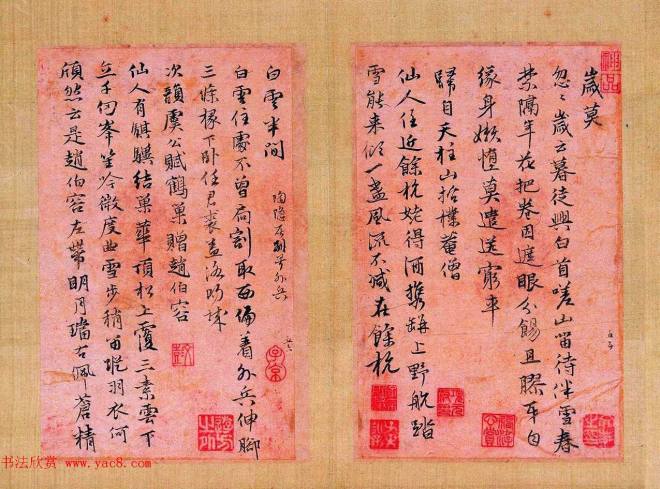 歲莫
忽〻歲云暮徒興白首嗟山留待伴雪春
禁隔年花把卷因遮眼分餳且膠牙自
緣身嬾惰莫遣送窮車
歸自天柱山拾櫟菴僧
仙人住近餘杭姥得酒携歸上野航踏
雪能來似一盞風流不減在餘杭
白雲半間
陶隱居副号外兵
白雲住處不曾扃割取西偏着外兵伸腳
三條椽下卧任君裘蓋
次韻虞公賦鶴巢贈趙伯容
仙人有騏驥結巢華頂松上覆三素雲下
立千仞峯笙吟微度曲雪步稍留蹤羽衣何
頎然云是趙伯容左帶明月璫右佩蒼精
书法欣赏 www.yac8.com